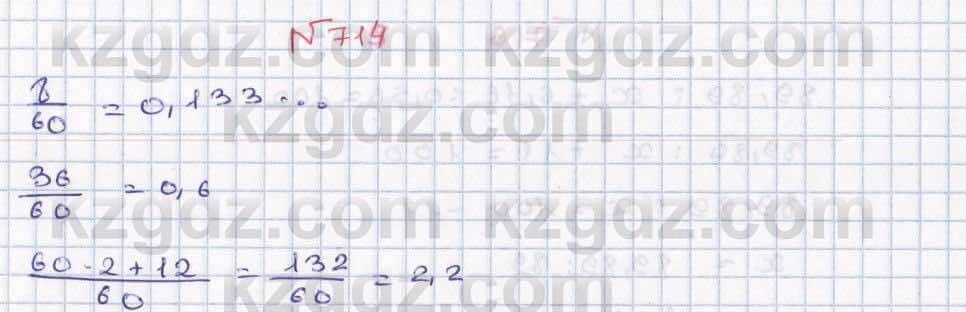 № 714
kzgdz.com kzgdz.com
8/60 = 0,133...
kzgdz.com kzgdz.com
36/60 = 0,6
kzgdz.com kzgdz.com
(60·2+12)/60 = 132/60 = 2,2
kzgdz.com kzgdz.com